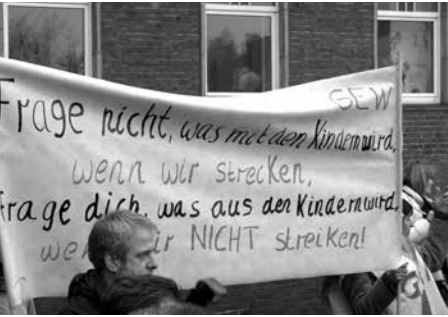 GEW
Frage nicht, was mit den Kindern wird,
wenn wir streiken,
Frage dich, was aus den Kindern wird,
wir NICHT streiken!